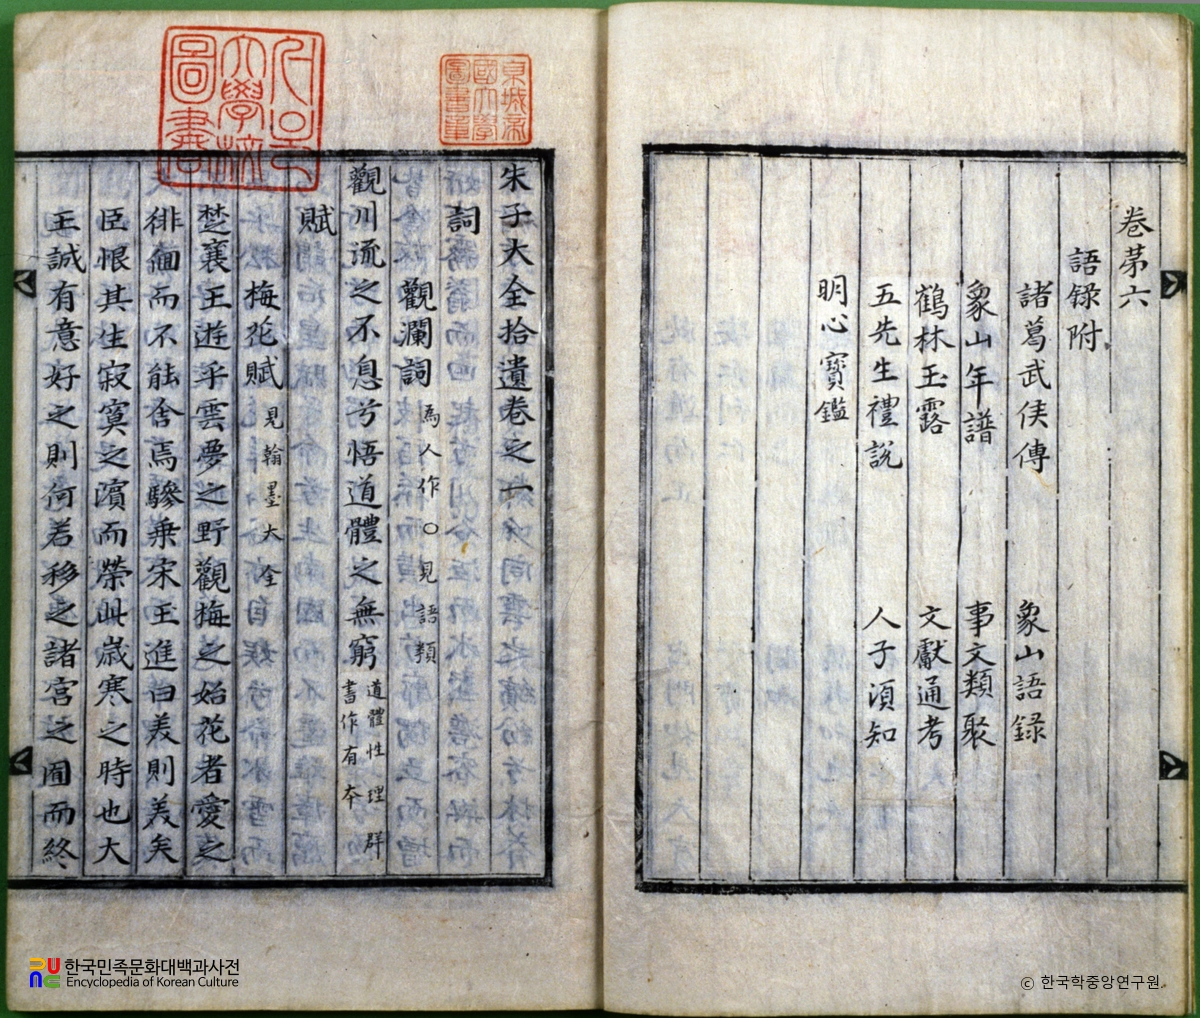 卷苐六
語録附
諸葛武侯傳 象山語録
象山年譜 事文類聚
鶴林玉露 文獻通考
五先生禮說 人子湏知
明心寳鑑
朱子大全拾遺卷之一
詞
觀瀾詞 爲人作○見語類
觀川流之不息兮悟道體之無窮 道體性理群書作有夲
賦
梅花賦 見翰墨大全
楚襄王遊乎雲夢之野觀梅之始花者愛之
徘徊而不能舍焉驂乗宋玉進曰羙則羙矣
臣恨其生寂寞之濵而榮此歲寒之時也大
王誠有意好之則何若移之諸宮之囿而終
京城帝國大學圖書章
大學校圖書
한국민족문화대백과사전
Encyclopedia of Korean Culture
© 한국학중앙연구원